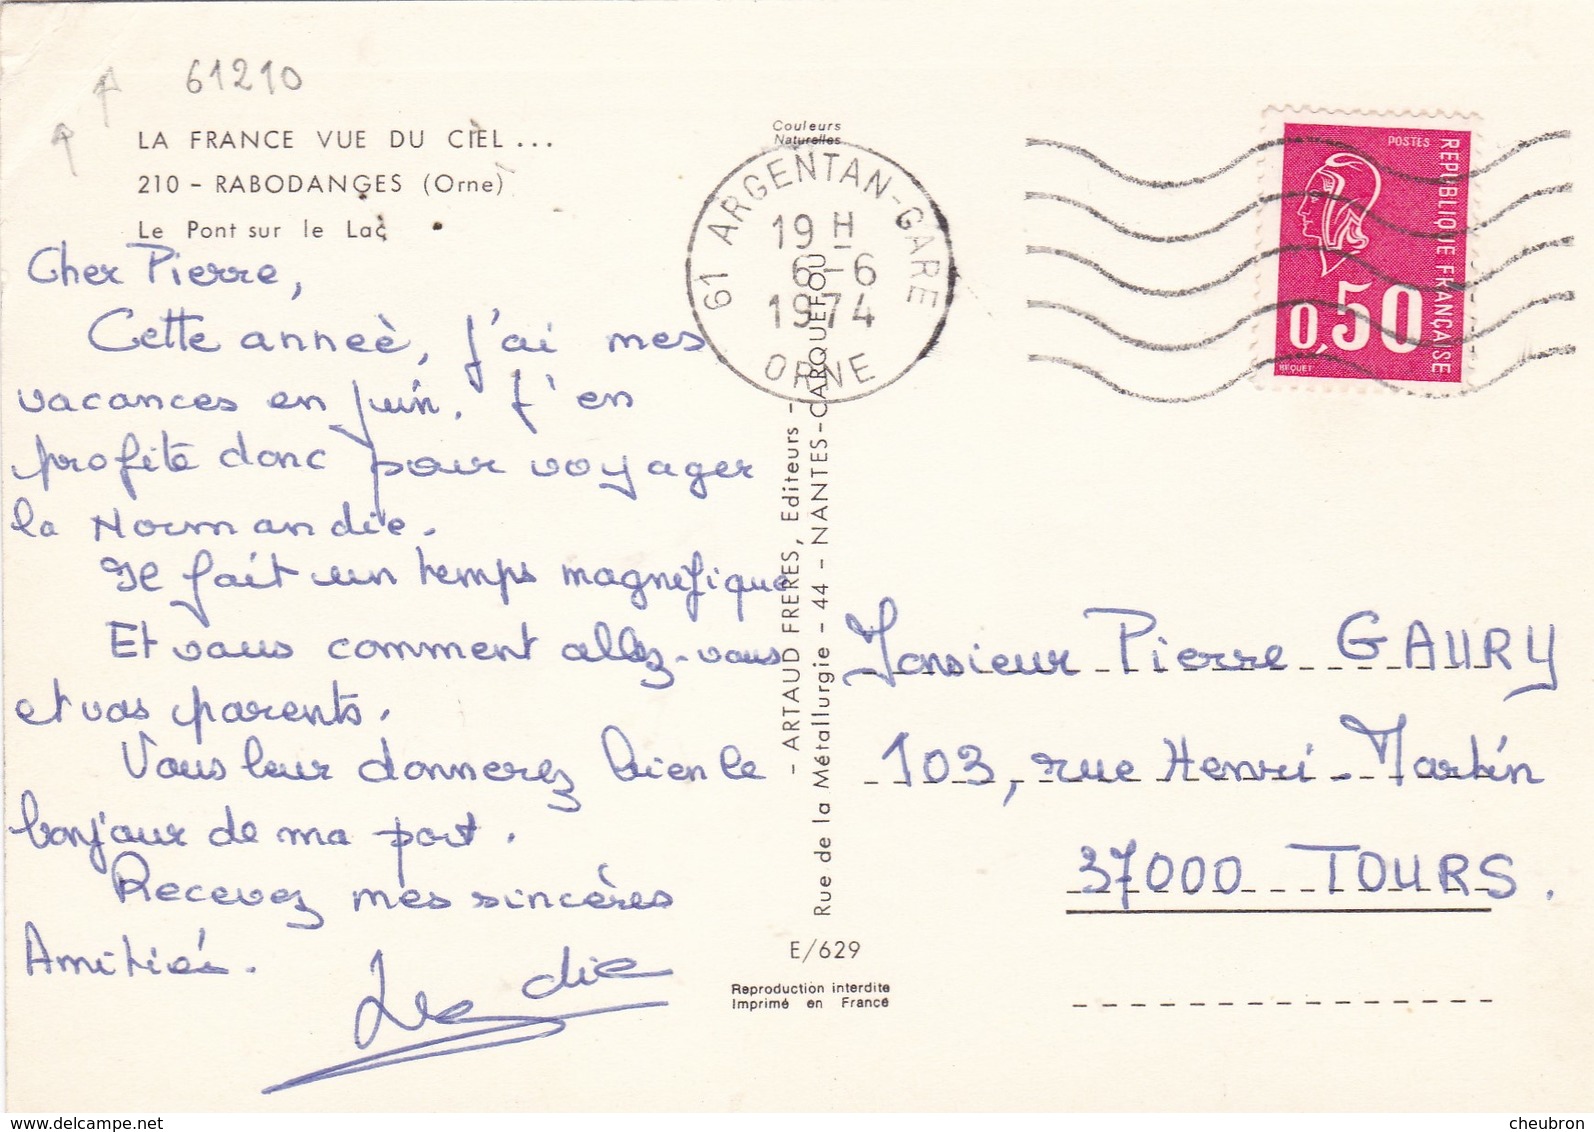 61210
LA FRANCE VUE DU CIEL...
210 - RABODANGES (Orne)
Le Pont sur le Lac
Cher Pierre,
Cette anneè, j'ai mes
vacances en juin. J'en
profite donc pour voyager
la Normandie.
Il fait un temps magnifique
Et vous comment allez-vous
et vos parents.
Vous leur donnerez bien le
bonjour de ma part.
Recevez mes sincères
Amitiés.
Couleurs
Naturelles
61 ARGENTAN-GARE
19 H
6-6
1974
ORNE
- ARTAUD FRERES, Editeurs -
Rue de la Métallurgie - 44 - NANTES-CARQUEFOU
E/629
Reproduction interdite
Imprimé en France
POSTES
REPUBLIQUE FRANÇAISE
0,50
BEQUET
Monsieur Pierre GAURY
103, rue Henri-Martin
37000 TOURS.
www.delcampe.net
cheubron